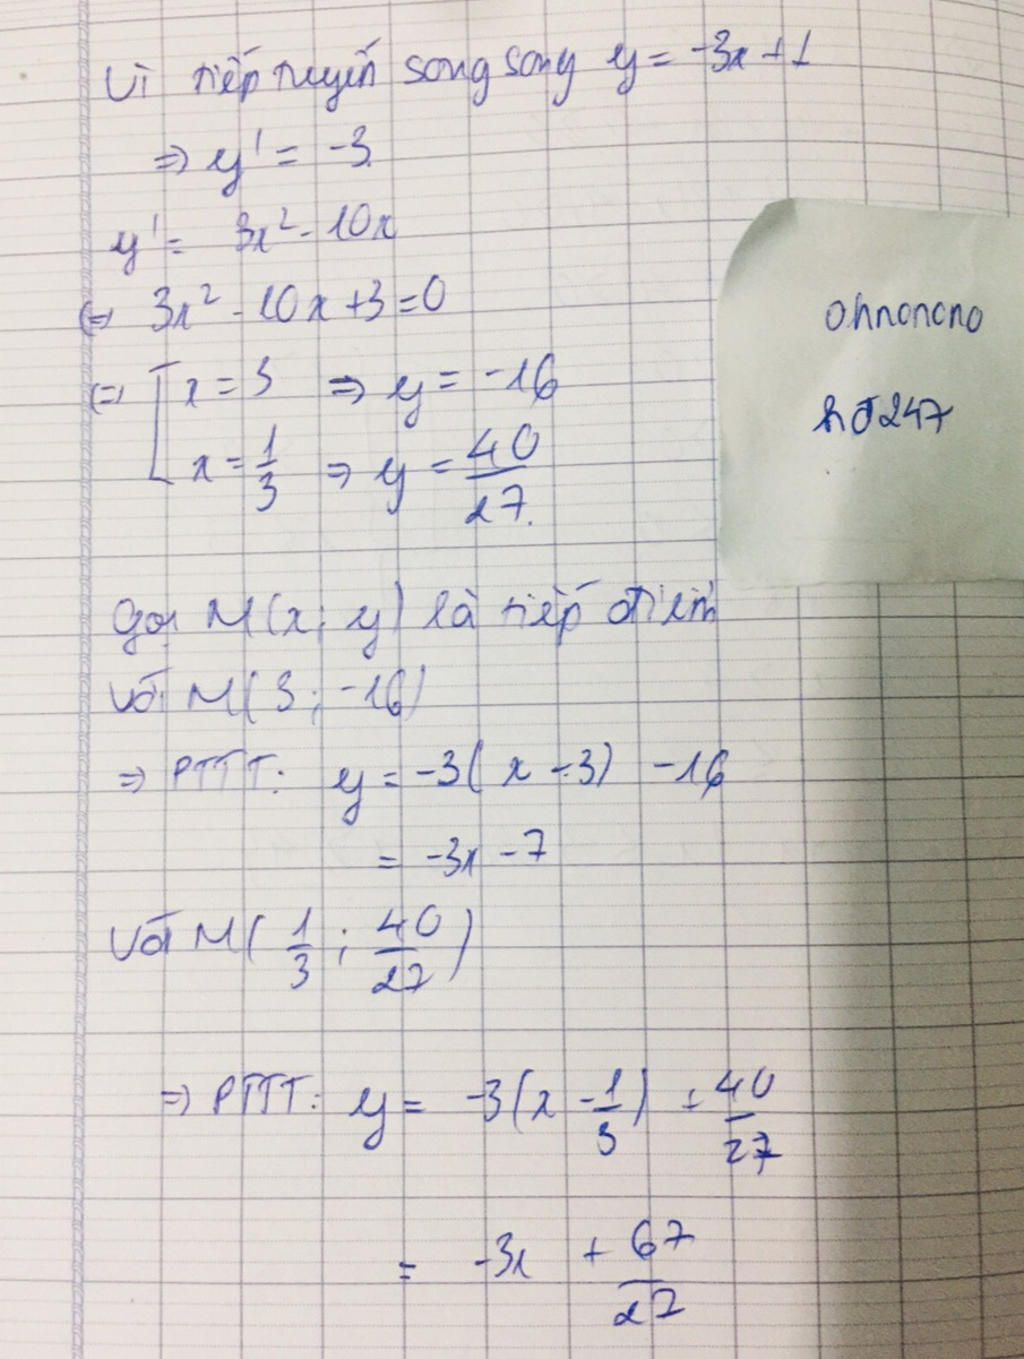 Vì tiếp tuyến song song y = -3x + 1
=> y' = -3
y' = 3x² - 10x
<=> 3x² - 10x + 3 = 0
<=> [ x = 3 => y = -16
x = 1/3 => y = 40/27.
Gọi M(x; y) là tiếp điểm
Với M(3; -16)
=> PTTT: y = -3(x - 3) - 16
= -3x - 7
Với M(1/3; 40/27)
=> PTTT: y = -3(x - 1/3) + 40/27
= -3x + 67/27
ohnonono
hđ247